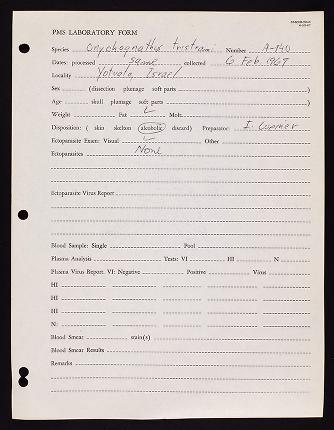 PMS LABORATORY FORM
Species Onychognathus tristrami Number A-140
Dates: processed same collected 6 Feb. 1967
Locality Yotvata, Israel
Sex (dissection plumage soft parts)
Age skull plumage soft parts)
Weight Fat L Molt
Disposition: ( skin skelton alcoholic discard) Preparator: I.
Ectoparasite Exam: Visual ✓ Other
Ectoparasites None
Ectoparasite Virus Report
Blood Sample: Single Pool
Plasma Analysis Tests: VI HI N
Plasma Virus Report VI: Negative Positive Virus
HI
HI
HI
N:
Blood Smear stain(s)
Blood Smear Results
Remarks